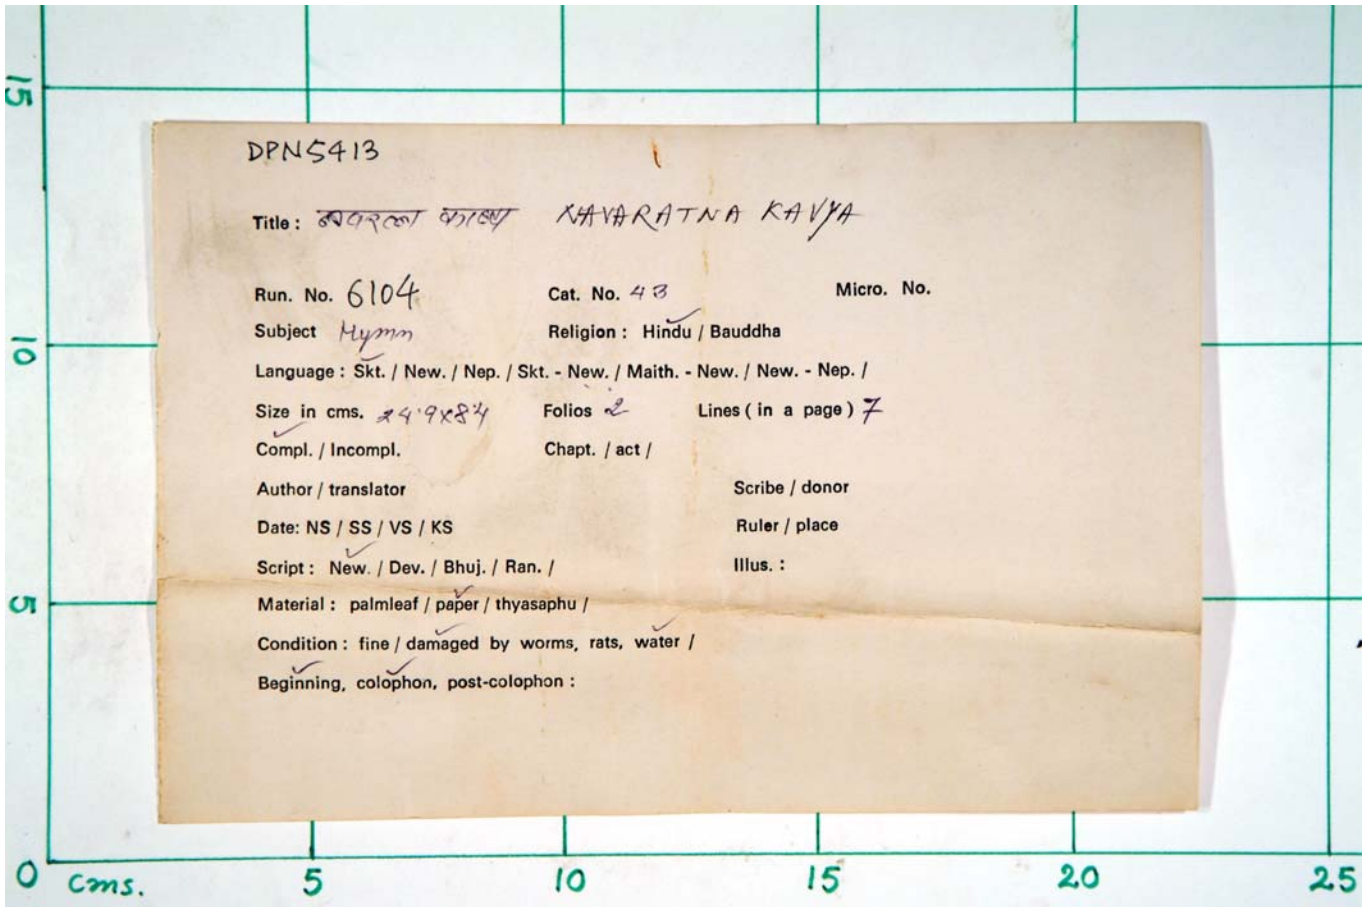 DPN5413
Title : नवरत्न काव्य NAVARATNA KAVYA
Run. No. 6104 Cat. No. 43 Micro. No.
Subject Hymn Religion : Hindu / Bauddha
Language : Skt. / New. / Nep. / Skt. - New. / Maith. - New. / New. - Nep. /
Size in cms. 24.9x8.4 Folios 2 Lines ( in a page ) 7
Compl. / Incompl. Chapt. / act /
Author / translator Scribe / donor
Date: NS / SS / VS / KS Ruler / place
Script : New. / Dev. / Bhuj. / Ran. / Illus. :
Material : palmleaf / paper / thyasaphu /
Condition : fine / damaged by worms, rats, water /
Beginning, colophon, post-colophon :
15
10
5
0 cms. 5 10 15 20 25